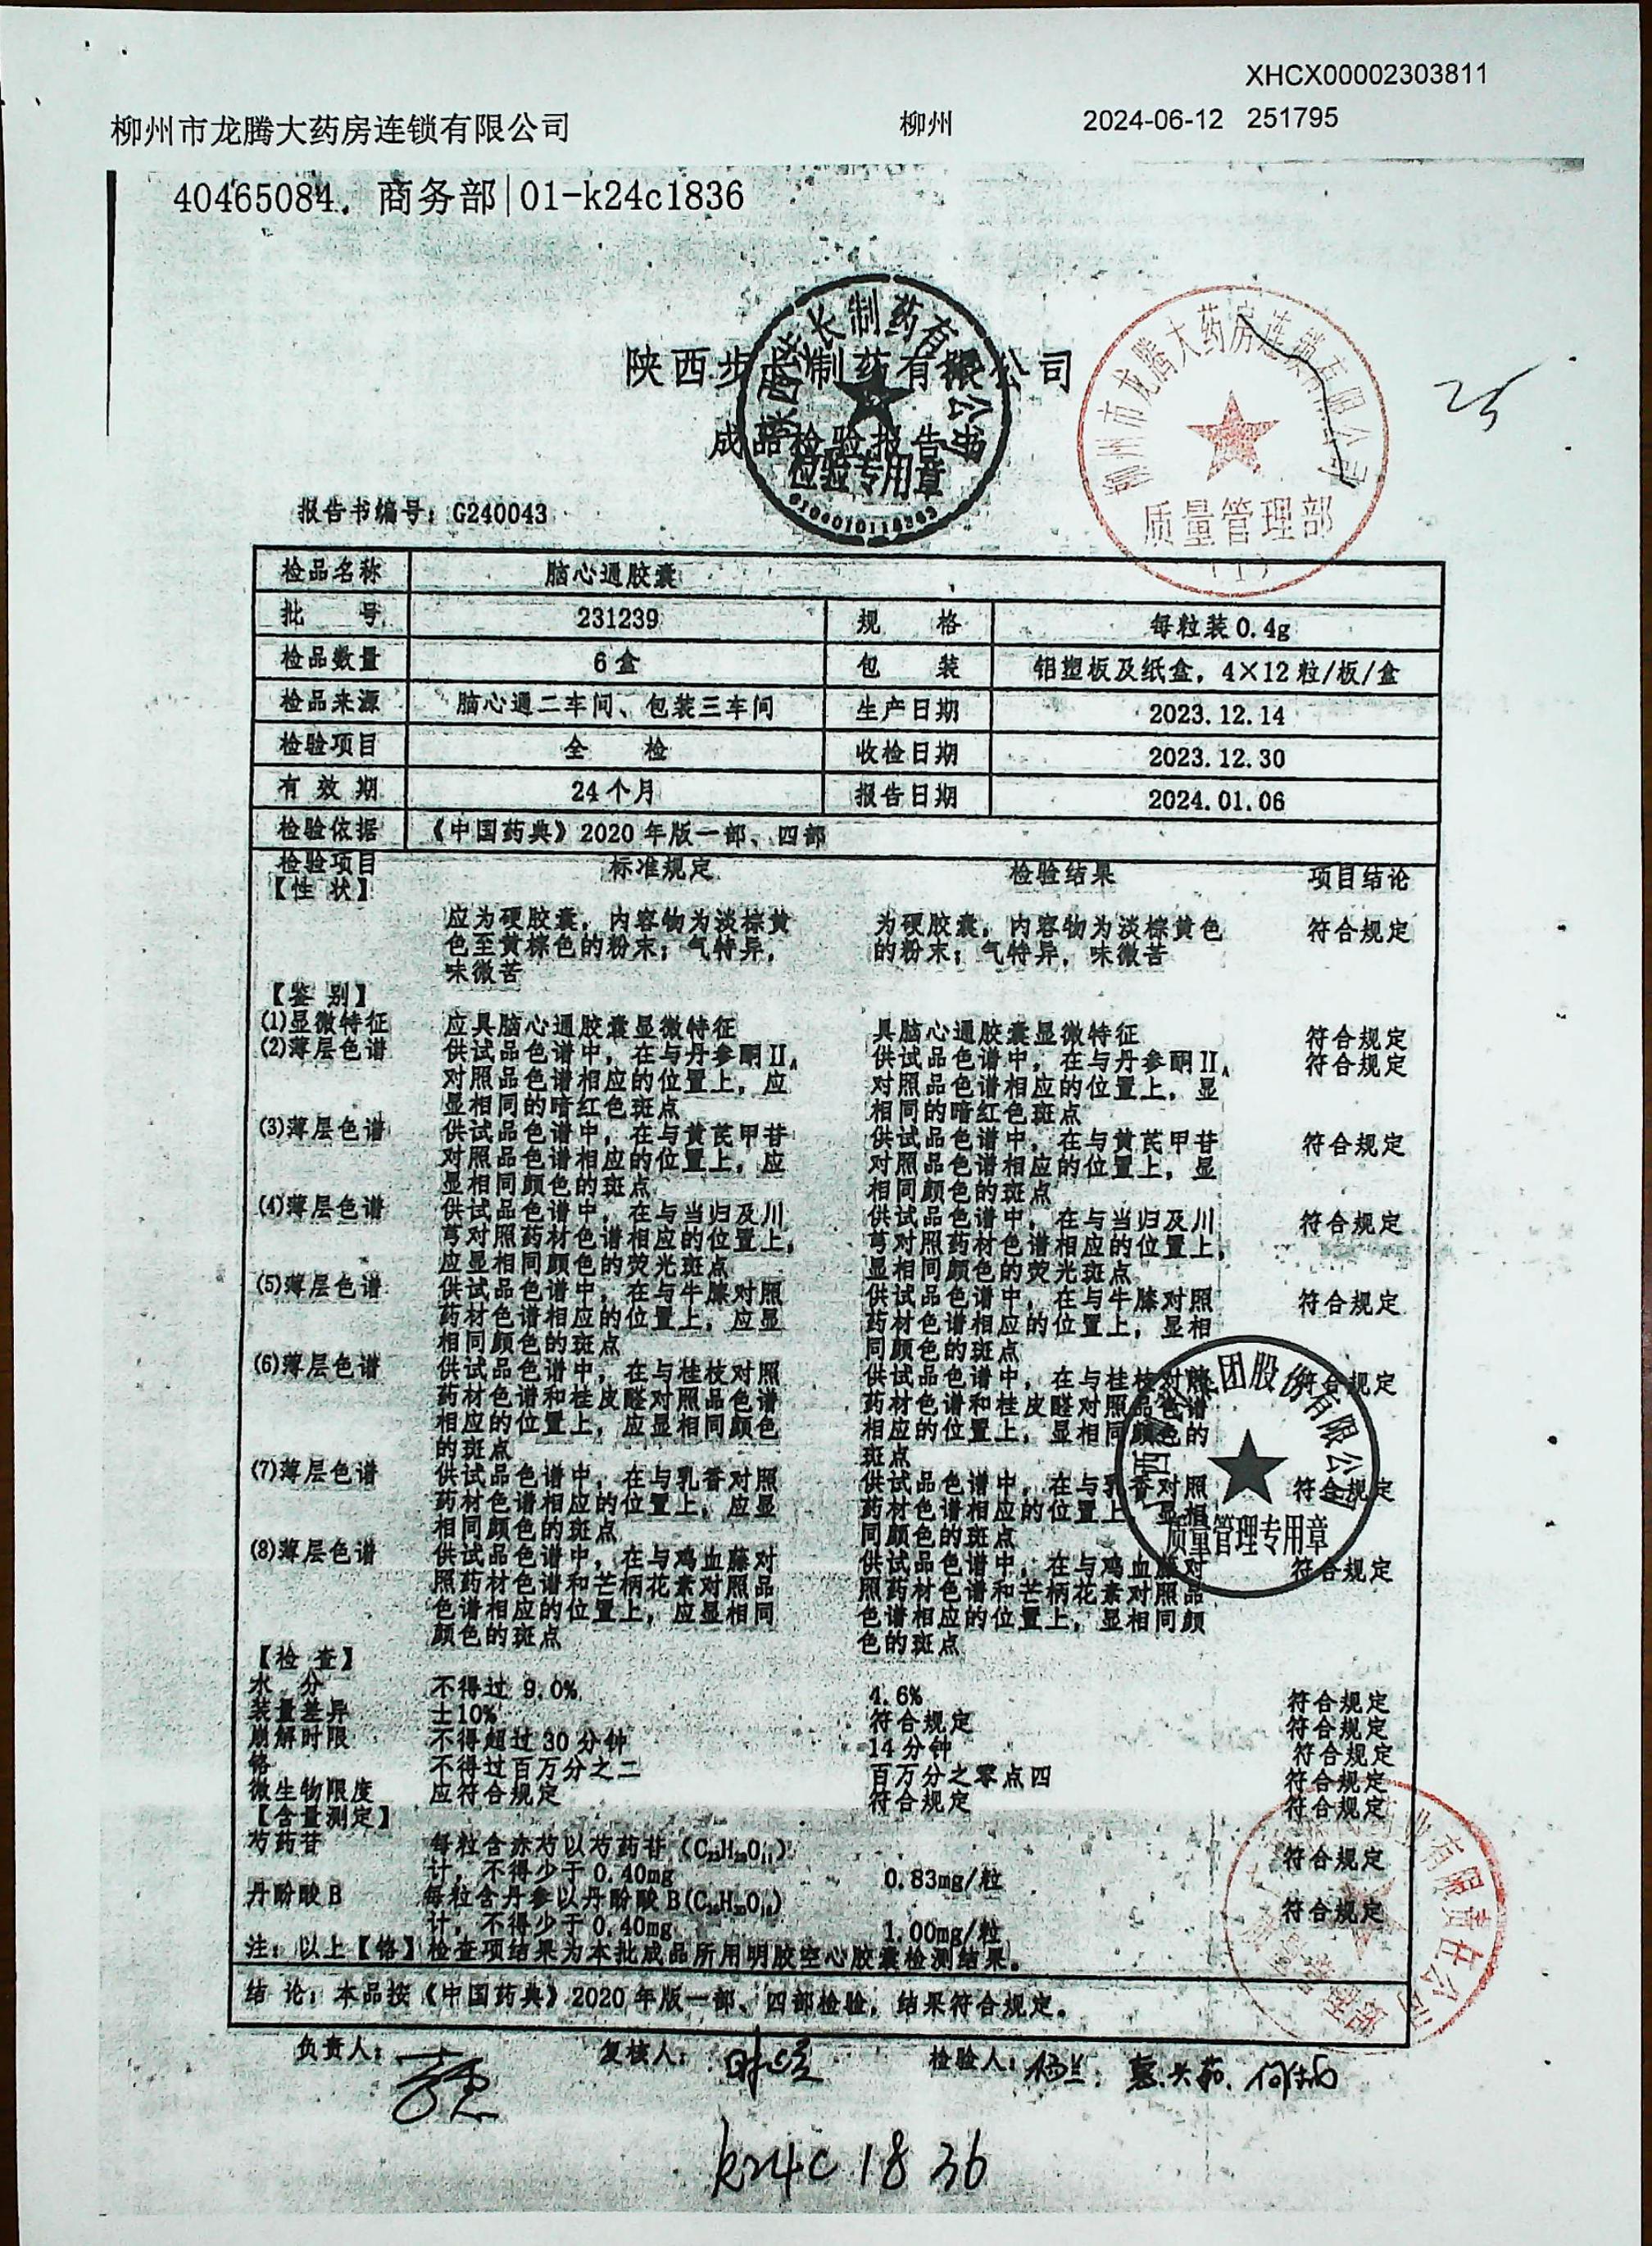 XHCX00002303811
柳州市龙腾大药房连锁有限公司 柳州 2024-06-12 251795
40465084. 商务部|01-k24c1836
陕西步长制药有限公司
成品检验报告书
检验专用章
柳州市龙腾大药房连锁有限公司
质量管理部
(1)
25
报告书编号：G240043
检品名称 脑心通胶囊
批 号 231239 规 格 每粒装0.4g
检品数量 6盒 包 装 铝塑板及纸盒，4×12粒/板/盒
检品来源 脑心通二车间、包装三车间 生产日期 2023.12.14
检验项目 全 检 收检日期 2023.12.30
有 效 期 24个月 报告日期 2024.01.06
检验依据 《中国药典》2020年版一部、四部
检验项目 标准规定 检验结果 项目结论
【性 状】
应为硬胶囊，内容物为淡棕黄 为硬胶囊，内容物为淡棕黄色 符合规定
色至黄棕色的粉末；气特异， 的粉末；气特异，味微苦
味微苦
【鉴 别】
(1)显微特征 应具脑心通胶囊显微特征 具脑心通胶囊显微特征 符合规定
(2)薄层色谱 供试品色谱中，在与丹参酮IIA 供试品色谱中，在与丹参酮IIA 符合规定
对照品色谱相应的位置上，应 对照品色谱相应的位置上，显
显相同的暗红色斑点 相同的暗红色斑点
(3)薄层色谱 供试品色谱中，在与黄芪甲苷 供试品色谱中，在与黄芪甲苷 符合规定
对照品色谱相应的位置上，应 对照品色谱相应的位置上，显
显相同颜色的斑点 相同颜色的斑点
(4)薄层色谱 供试品色谱中，在与当归及川 供试品色谱中，在与当归及川 符合规定
芎对照药材色谱相应的位置上， 芎对照药材色谱相应的位置上，
应显相同颜色的荧光斑点 显相同颜色的荧光斑点
(5)薄层色谱 供试品色谱中，在与牛膝对照 供试品色谱中，在与牛膝对照 符合规定
药材色谱相应的位置上，应显 药材色谱相应的位置上，显相
相同颜色的斑点 同颜色的斑点
(6)薄层色谱 供试品色谱中，在与桂枝对照 供试品色谱中，在与桂枝对照 符合规定
药材色谱和桂皮醛对照品色谱 药材色谱和桂皮醛对照品色谱
相应的位置上，应显相同颜色 相应的位置上，显相同颜色的
的斑点 斑点
(7)薄层色谱 供试品色谱中，在与乳香对照 供试品色谱中，在与乳香对照 符合规定
药材色谱相应的位置上，应显 药材色谱相应的位置上，显相
相同颜色的斑点 同颜色的斑点
质量管理专用章
(8)薄层色谱 供试品色谱中，在与鸡血藤对 供试品色谱中，在与鸡血藤对 符合规定
照药材色谱和芒柄花素对照品 照药材色谱和芒柄花素对照品
色谱相应的位置上，应显相同 色谱相应的位置上，显相同颜
颜色的斑点 色的斑点
【检 查】
水 分 不得过 9.0% 4.6% 符合规定
装量差异 ±10% 符合规定 符合规定
崩解时限 不得超过30分钟 14分钟 符合规定
铬 不得过百万分之二 百万分之零点四 符合规定
微生物限度 应符合规定 符合规定 符合规定
【含量测定】
芍药苷 每粒含赤芍以芍药苷（C23H28O11） 符合规定
计，不得少于0.40mg 0.83mg/粒
丹酚酸B 每粒含丹参以丹酚酸B(C36H30O16) 符合规定
计，不得少于0.40mg 1.00mg/粒
注：以上【铬】检查项结果为本批成品所用明胶空心胶囊检测结果。
结 论：本品按《中国药典》2020年版一部、四部检验，结果符合规定。
负责人： 复核人： 检验人：
k24c1836